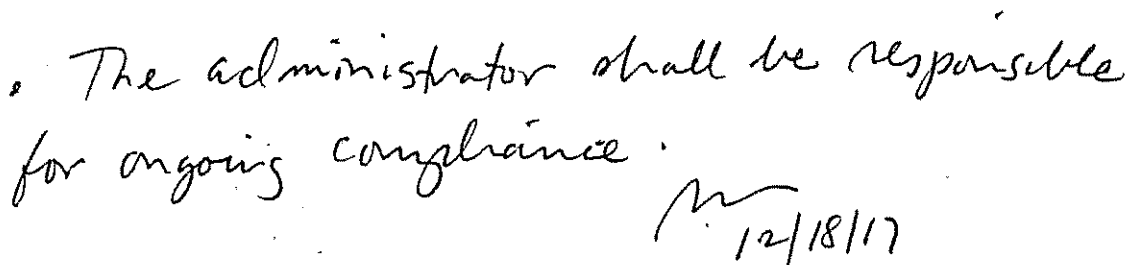 . The administrator shall be responsible
for ongoing compliance.
12/18/17